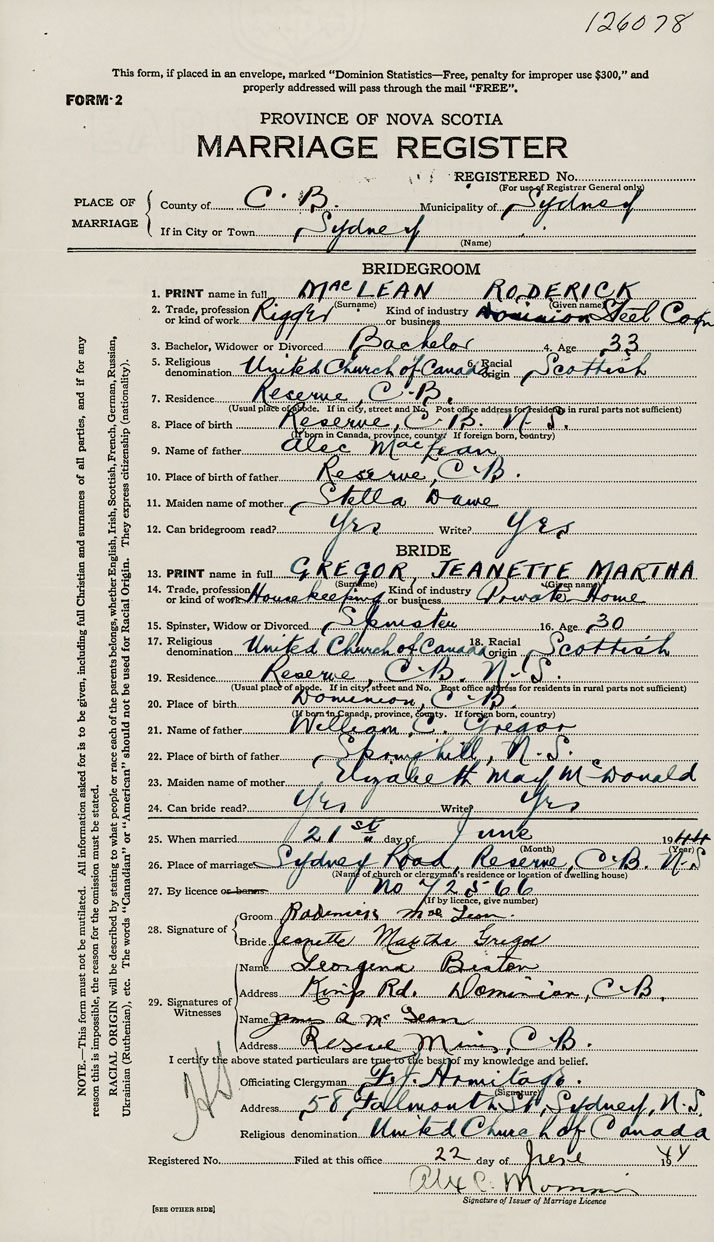 126078
This form, if placed in an envelope, marked “Dominion Statistics—Free, penalty for improper use $300,” and
properly addressed will pass through the mail “FREE”.
FORM 2
PROVINCE OF NOVA SCOTIA
MARRIAGE REGISTER
REGISTERED No.
(For use of Registrar General only)
PLACE OF MARRIAGE
County of C. B. Municipality of Sydney
If in City or Town Sydney
(Name)
BRIDEGROOM
1. PRINT name in full MacLEAN RODERICK
(Surname) (Given name)
2. Trade, profession or kind of work Rigger Kind of industry or business Dominion Steel Corpn
3. Bachelor, Widower or Divorced Bachelor 4. Age 33
5. Religious denomination United Church of Canada 6. Racial origin Scottish
7. Residence Reserve, C.B.
(Usual place of abode. If in city, street and No. Post office address for residents in rural parts not sufficient)
8. Place of birth Reserve, C.B. N.S.
(If born in Canada, province, county. If foreign born, country)
9. Name of father Alec MacLean
10. Place of birth of father Reserve, C.B.
11. Maiden name of mother Stella Dawe
12. Can bridegroom read? Yes Write? Yes
BRIDE
13. PRINT name in full GREGOR, JEANETTE MARTHA
(Surname) (Given name)
14. Trade, profession or kind of work Housekeeping Kind of industry or business Private Home
15. Spinster, Widow or Divorced Spinster 16. Age 30
17. Religious denomination United Church of Canada 18. Racial origin Scottish
19. Residence Reserve, C.B. N.S.
(Usual place of abode. If in city, street and No. Post office address for residents in rural parts not sufficient)
20. Place of birth Dominion, C.B.
(If born in Canada, province, county. If foreign born, country)
21. Name of father William C. Gregor
22. Place of birth of father Springhill, N.S.
23. Maiden name of mother Elizabeth May McDonald
24. Can bride read? Yes Write? Yes
25. When married 21st day of June 1944
(Month) (Year)
26. Place of marriage Sydney Road, Reserve, C.B. N.S
(Name of church or clergyman's residence or location of dwelling house)
27. By licence or banns No 72566
(If by licence, give number)
28. Signature of
Groom Roderick MacLean
Bride Jeanette Martha Gregor
29. Signatures of Witnesses
Name Georgena Beaton
Address Kings Rd. Dominion, C.B.
Name James A McLean
Address Reserve Mines, C.B.
I certify the above stated particulars are true to the best of my knowledge and belief.
Officiating Clergyman F. J. Armitage.
(Signature)
Address 58 Falmouth St, Sydney, N.S.
Religious denomination United Church of Canada
Registered No. Filed at this office 22 day of June 1944
Signature of Issuer of Marriage Licence
[SEE OTHER SIDE]
NOTE.—This form must not be mutilated. All information asked for is to be given, including full Christian and surnames of all parties, and if for any
reason this is impossible, the reason for the omission must be stated.
RACIAL ORIGIN will be described by stating to what people or race each of the parents belongs, whether English, Irish, Scottish, French, German, Russian,
Ukrainian (Ruthenian), etc. The words “Canadian” or “American” should not be used for Racial Origin. They express citizenship (nationality).